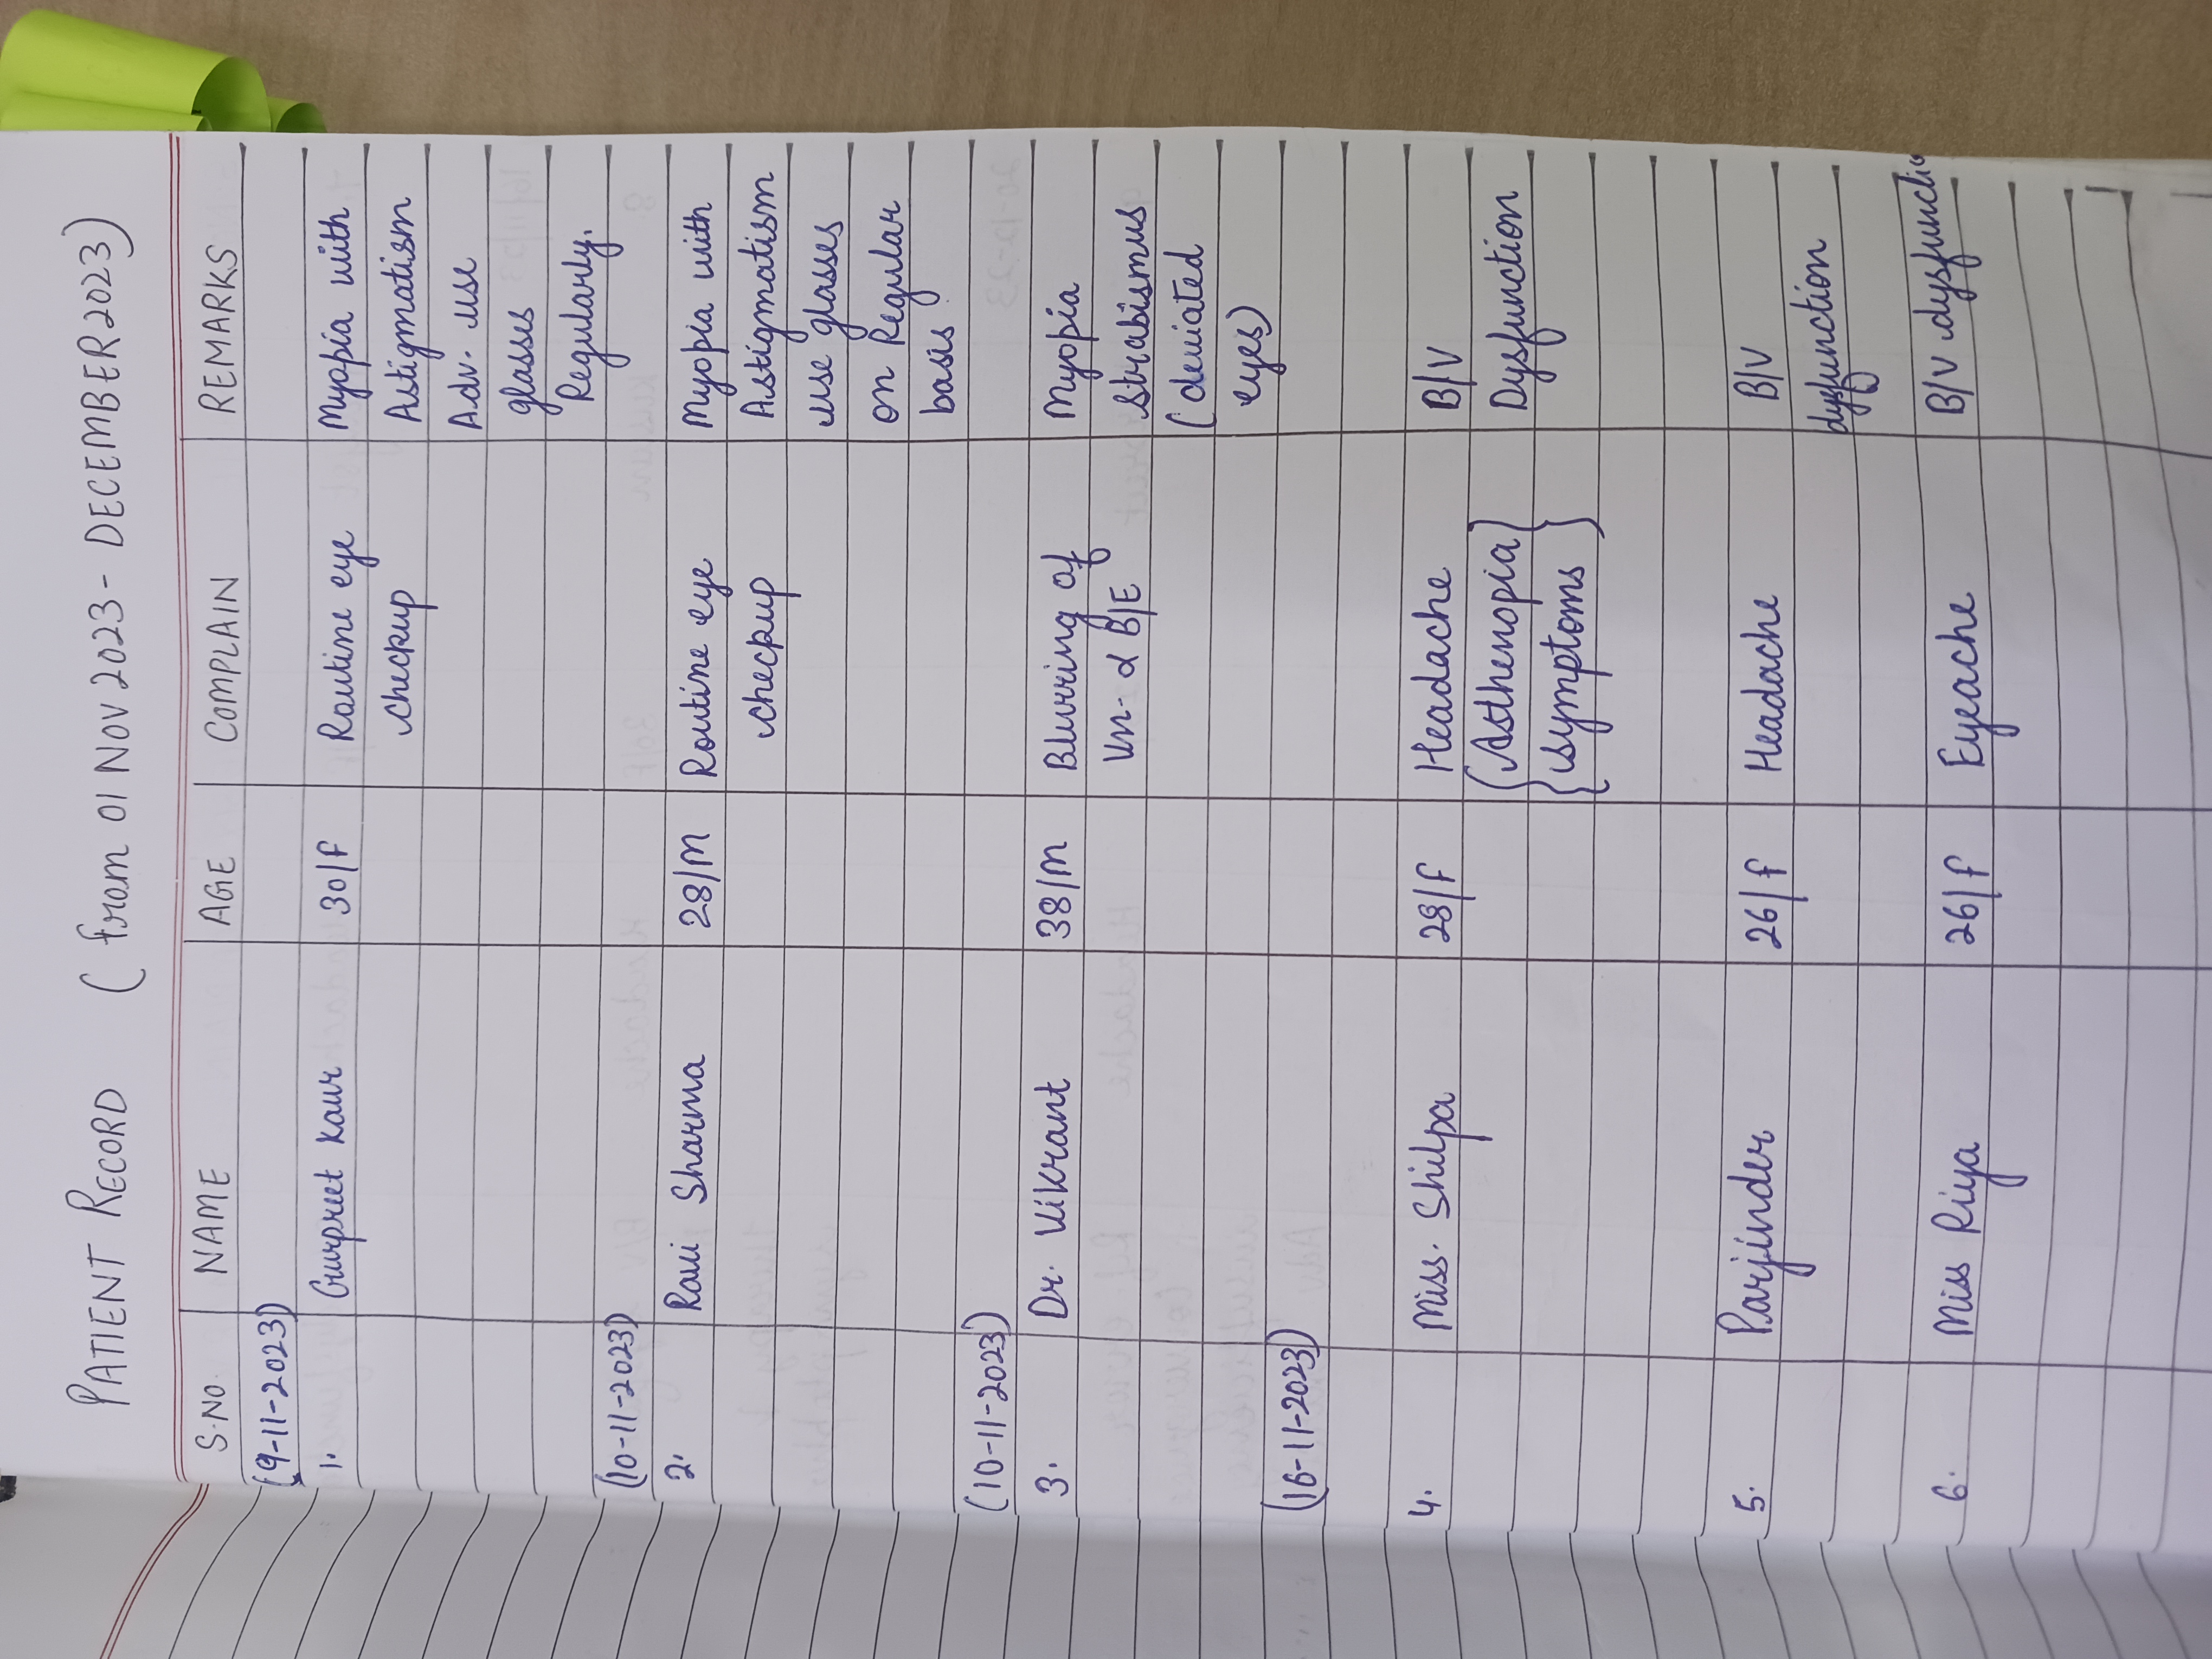 PATIENT RECORD (from 01 NOV 2023 - DECEMBER 2023)
S.NO. NAME AGE COMPLAIN REMARKS
(9-11-2023)
1. Gurpreet Kaur 30/f Routine eye Myopia with
checkup Astigmatism
Adv. use
glasses
Regularly.
(10-11-2023)
2. Ravi Sharma 28/M Routine eye Myopia with
checkup Astigmatism
use glasses
on Regular
basis
(10-11-2023)
3. Dr. Vikrant 38/M Blurring of Myopia
Vn. B/E Strabismus
(deviated
eyes)
(16-11-2023)
4. Miss. Shilpa 28/f Headache B/V
{Asthenopia Dysfunction
symptoms}
5. Parjinder 26/f Headache B/V
dysfunction
6. Miss Riya 26/f Eyeache B/V dysfunctio